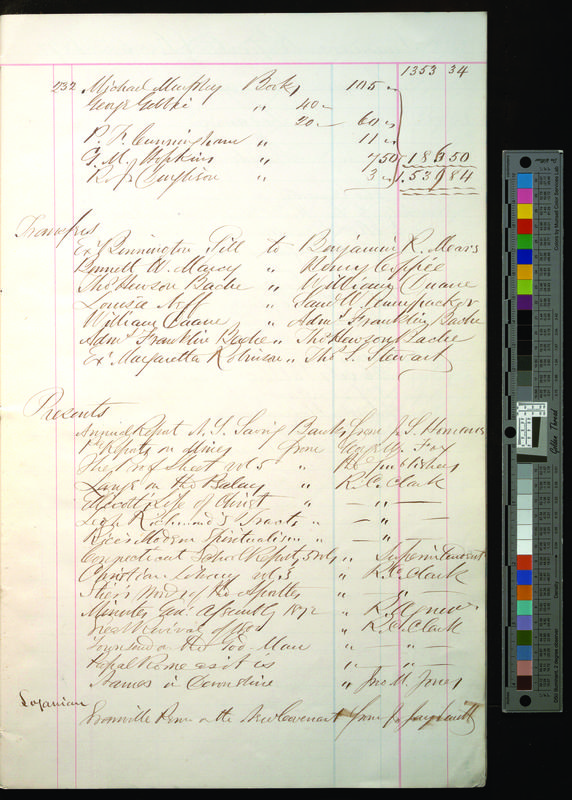 1353 34
232 Michael Murphey Books 105
George Gebbie " 40
20 60
P. F. Cunningham " 11
G. M. Hopkins " 7 50 186 50
3 1.539 84
Transfers
Exr Pennington Till to Benjamin R. Mears
Bennett W. " Henry Coppée
Thos Hewson Bache " William Duane
Louisa Neff " Saml W. Pennypacker
William Duane " Admr Franklin Bache
Admr Franklin Bache " Thos Hewson Bache
Exr Margaretta Robinson " Thos S. Stewart
Presents
Annual Report N.Y. Saving Banks from J. S.
Reports on Mines from Fox
The Proof Sheet vol 5 " The Publishers
on the " R. C. Clark
Life of Christ " — " —
Legh Richmond's Tracts " — " —
Rice's Modern Spiritualism " — " —
Connecticut School Report 3 vols " Superintendent
Christian Library vol 3 " R. C. Clark
Words of the Apostles " — " —
Minutes Genl Assembly 1872 " R.
Great Revival of " R. C. Clark
Townsend on the God-Man " — " —
Papal Rome as it is " " —
Names in Devonshire " Jno M. Jones
Loganian
Granville Penn on the New Covenant from J.